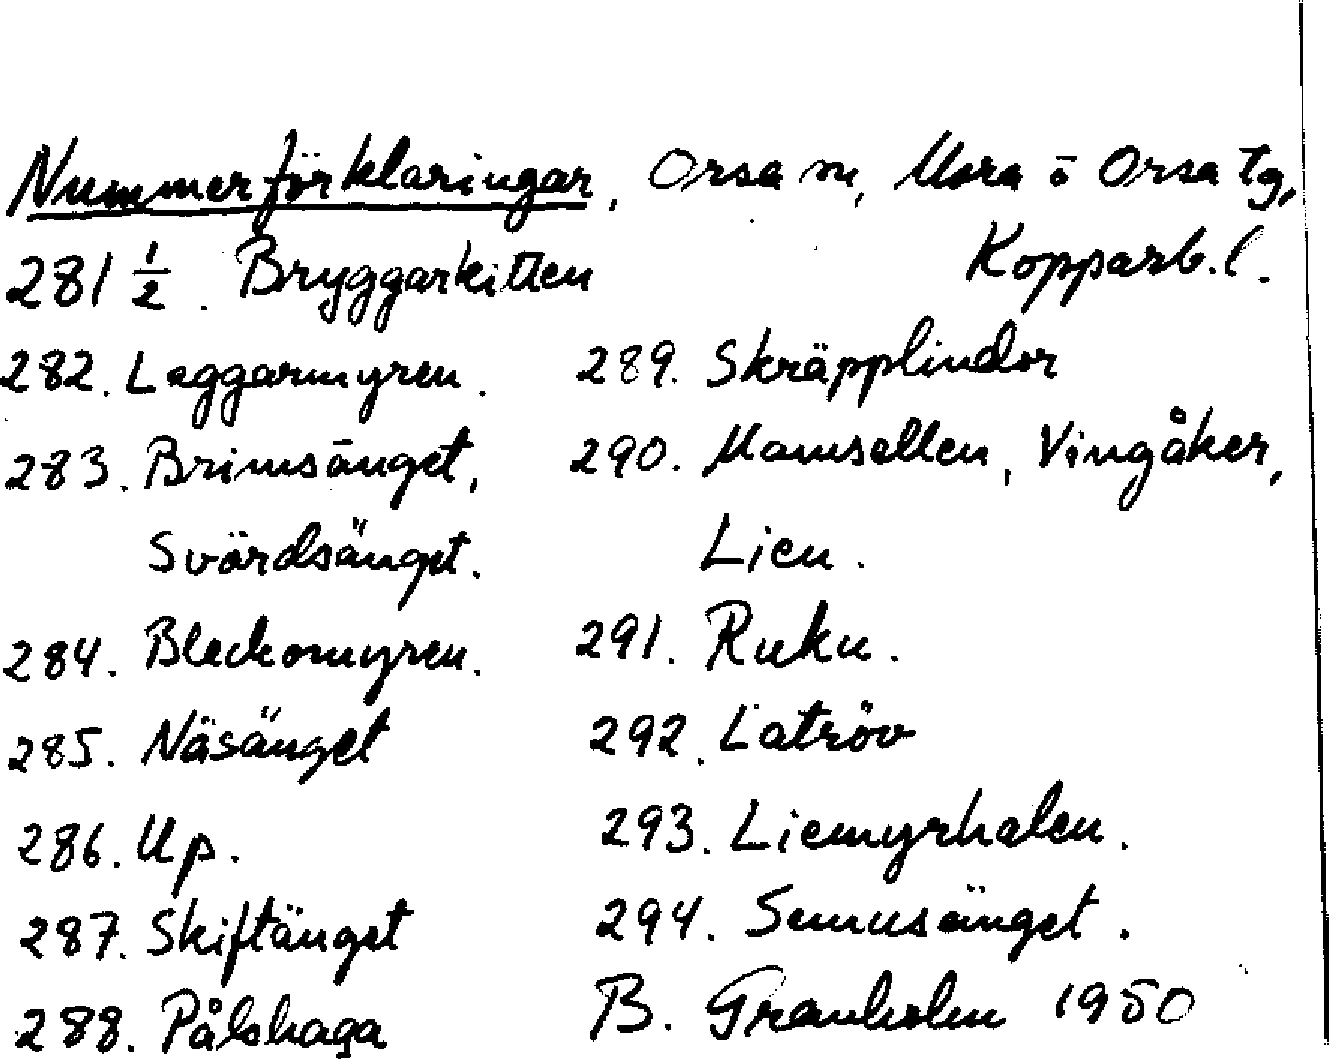 Nummerförklaringar, Orsa m, Mora o Orsa tg,
Kopparb. l.
281 1/2. Bryggarkitten
282. Laggarmyren.
283. Brimsänget,
Svärdsänget.
284. Bleckomyren.
285. Näsänget
286. Up.
287. Skiftänget
288. Pålshaga
289. Skräpplindor
290. Mamsellen, Vingåker,
Lien.
291. Ruku.
292. Latröv
293. Liemyrhalen.
294.
B. Granholm 1950